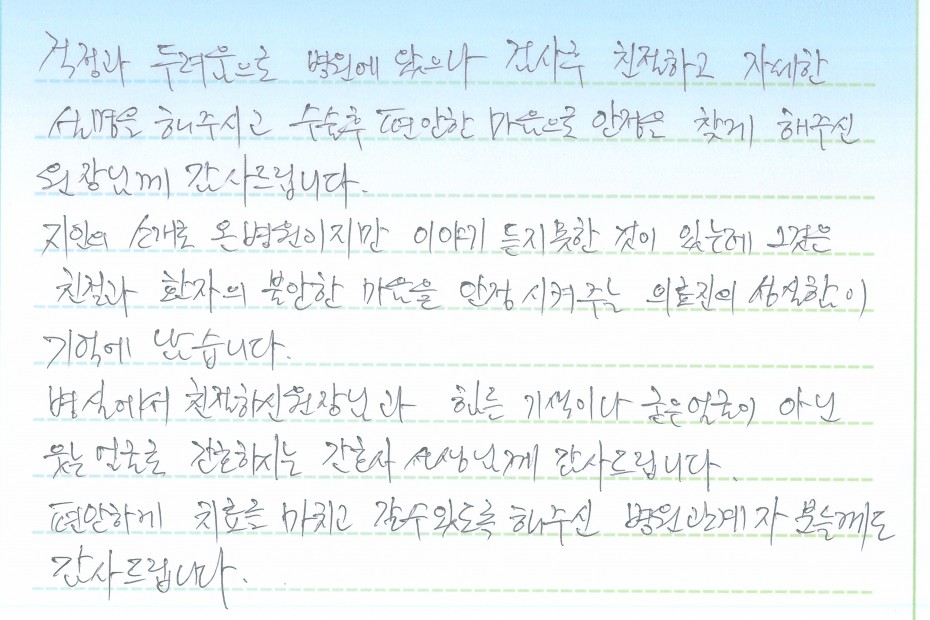 걱정과 두려움으로 병원에 왔으나 검사후 친절하고 자세한
설명을 해주시고 수술후 편안한 마음으로 안정을 찾게 해주신
원장님께 감사드립니다.
지인의 소개로 온병원이지만 이야기 듣지못한 것이 있는데 그것은
친절과 환자의 불안한 마음을 안정 시켜주는 의료진의 성실함이
기억에 남습니다.
병실에서 친절하신원장님과 힘든 기색이나 굳은얼굴이 아닌
웃는 얼굴로 간호하시는 간호사 선생님께 감사드립니다.
편안하게 치료를 마치고 갈수있도록 해주신 병원관계자 분들께도
감사드립니다.